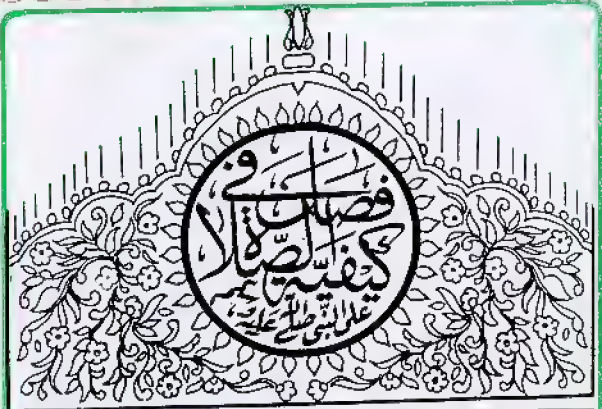 فصل في
كيفية الصلاة
على النبي صلى الله عليه وسلم